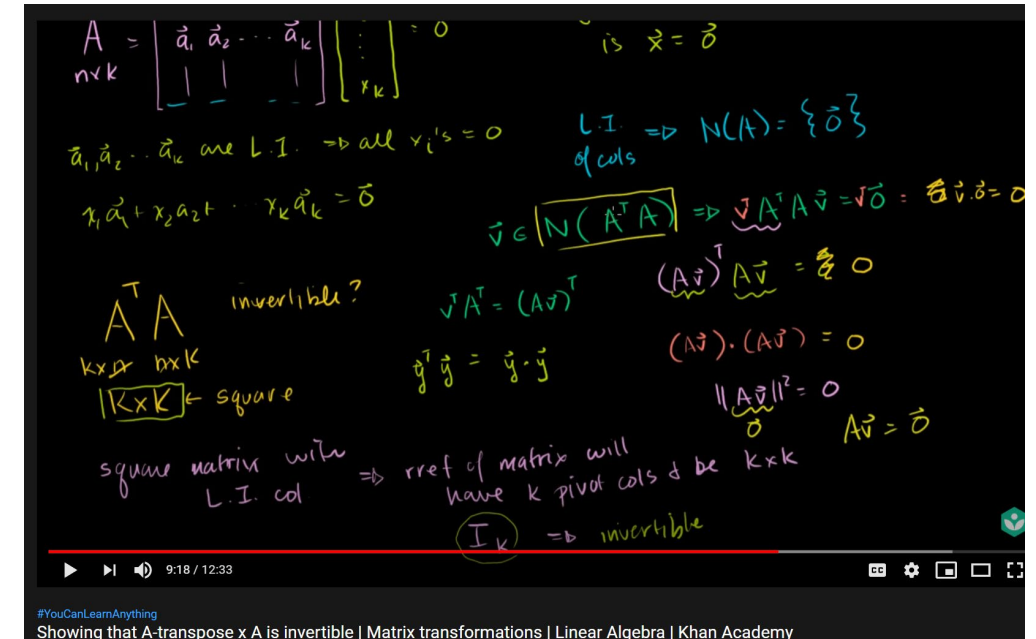 A = [ a⃗₁ a⃗₂ ... a⃗ₖ ] [ ⋮ xₖ ] = 0
n×k
is x⃗ = 0⃗
a⃗₁, a⃗₂ .. a⃗ₖ are L.I. ⇒ all xᵢ's = 0
L.I. ⇒ N(A) = {0⃗}
of cols
x₁a⃗₁ + x₂a₂ + ... xₖa⃗ₖ = 0⃗
v⃗ ∈ N(AᵀA) ⇒ v⃗AᵀAv⃗ = v⃗0⃗ = v⃗·0⃗ = 0
AᵀA invertible?
k×n n×k
k×k ← square
vᵀAᵀ = (Av⃗)ᵀ
y⃗ᵀy⃗ = y⃗·y⃗
(Av⃗)ᵀ Av⃗ = 0
(Av⃗)·(Av⃗) = 0
||Av⃗||² = 0
0⃗
Av⃗ = 0⃗
square matrix with
L.I. col
⇒ rref of matrix will
have k pivot cols & be k×k
Iₖ ⇒ invertible
9:18 / 12:33
CC
#YouCanLearnAnything
Showing that A-transpose x A is invertible | Matrix transformations | Linear Algebra | Khan Academy